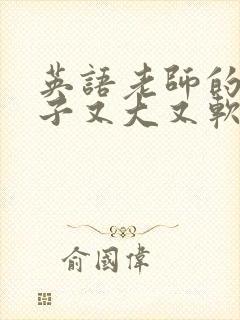 英語老師的
子又大又軟
俞國偉